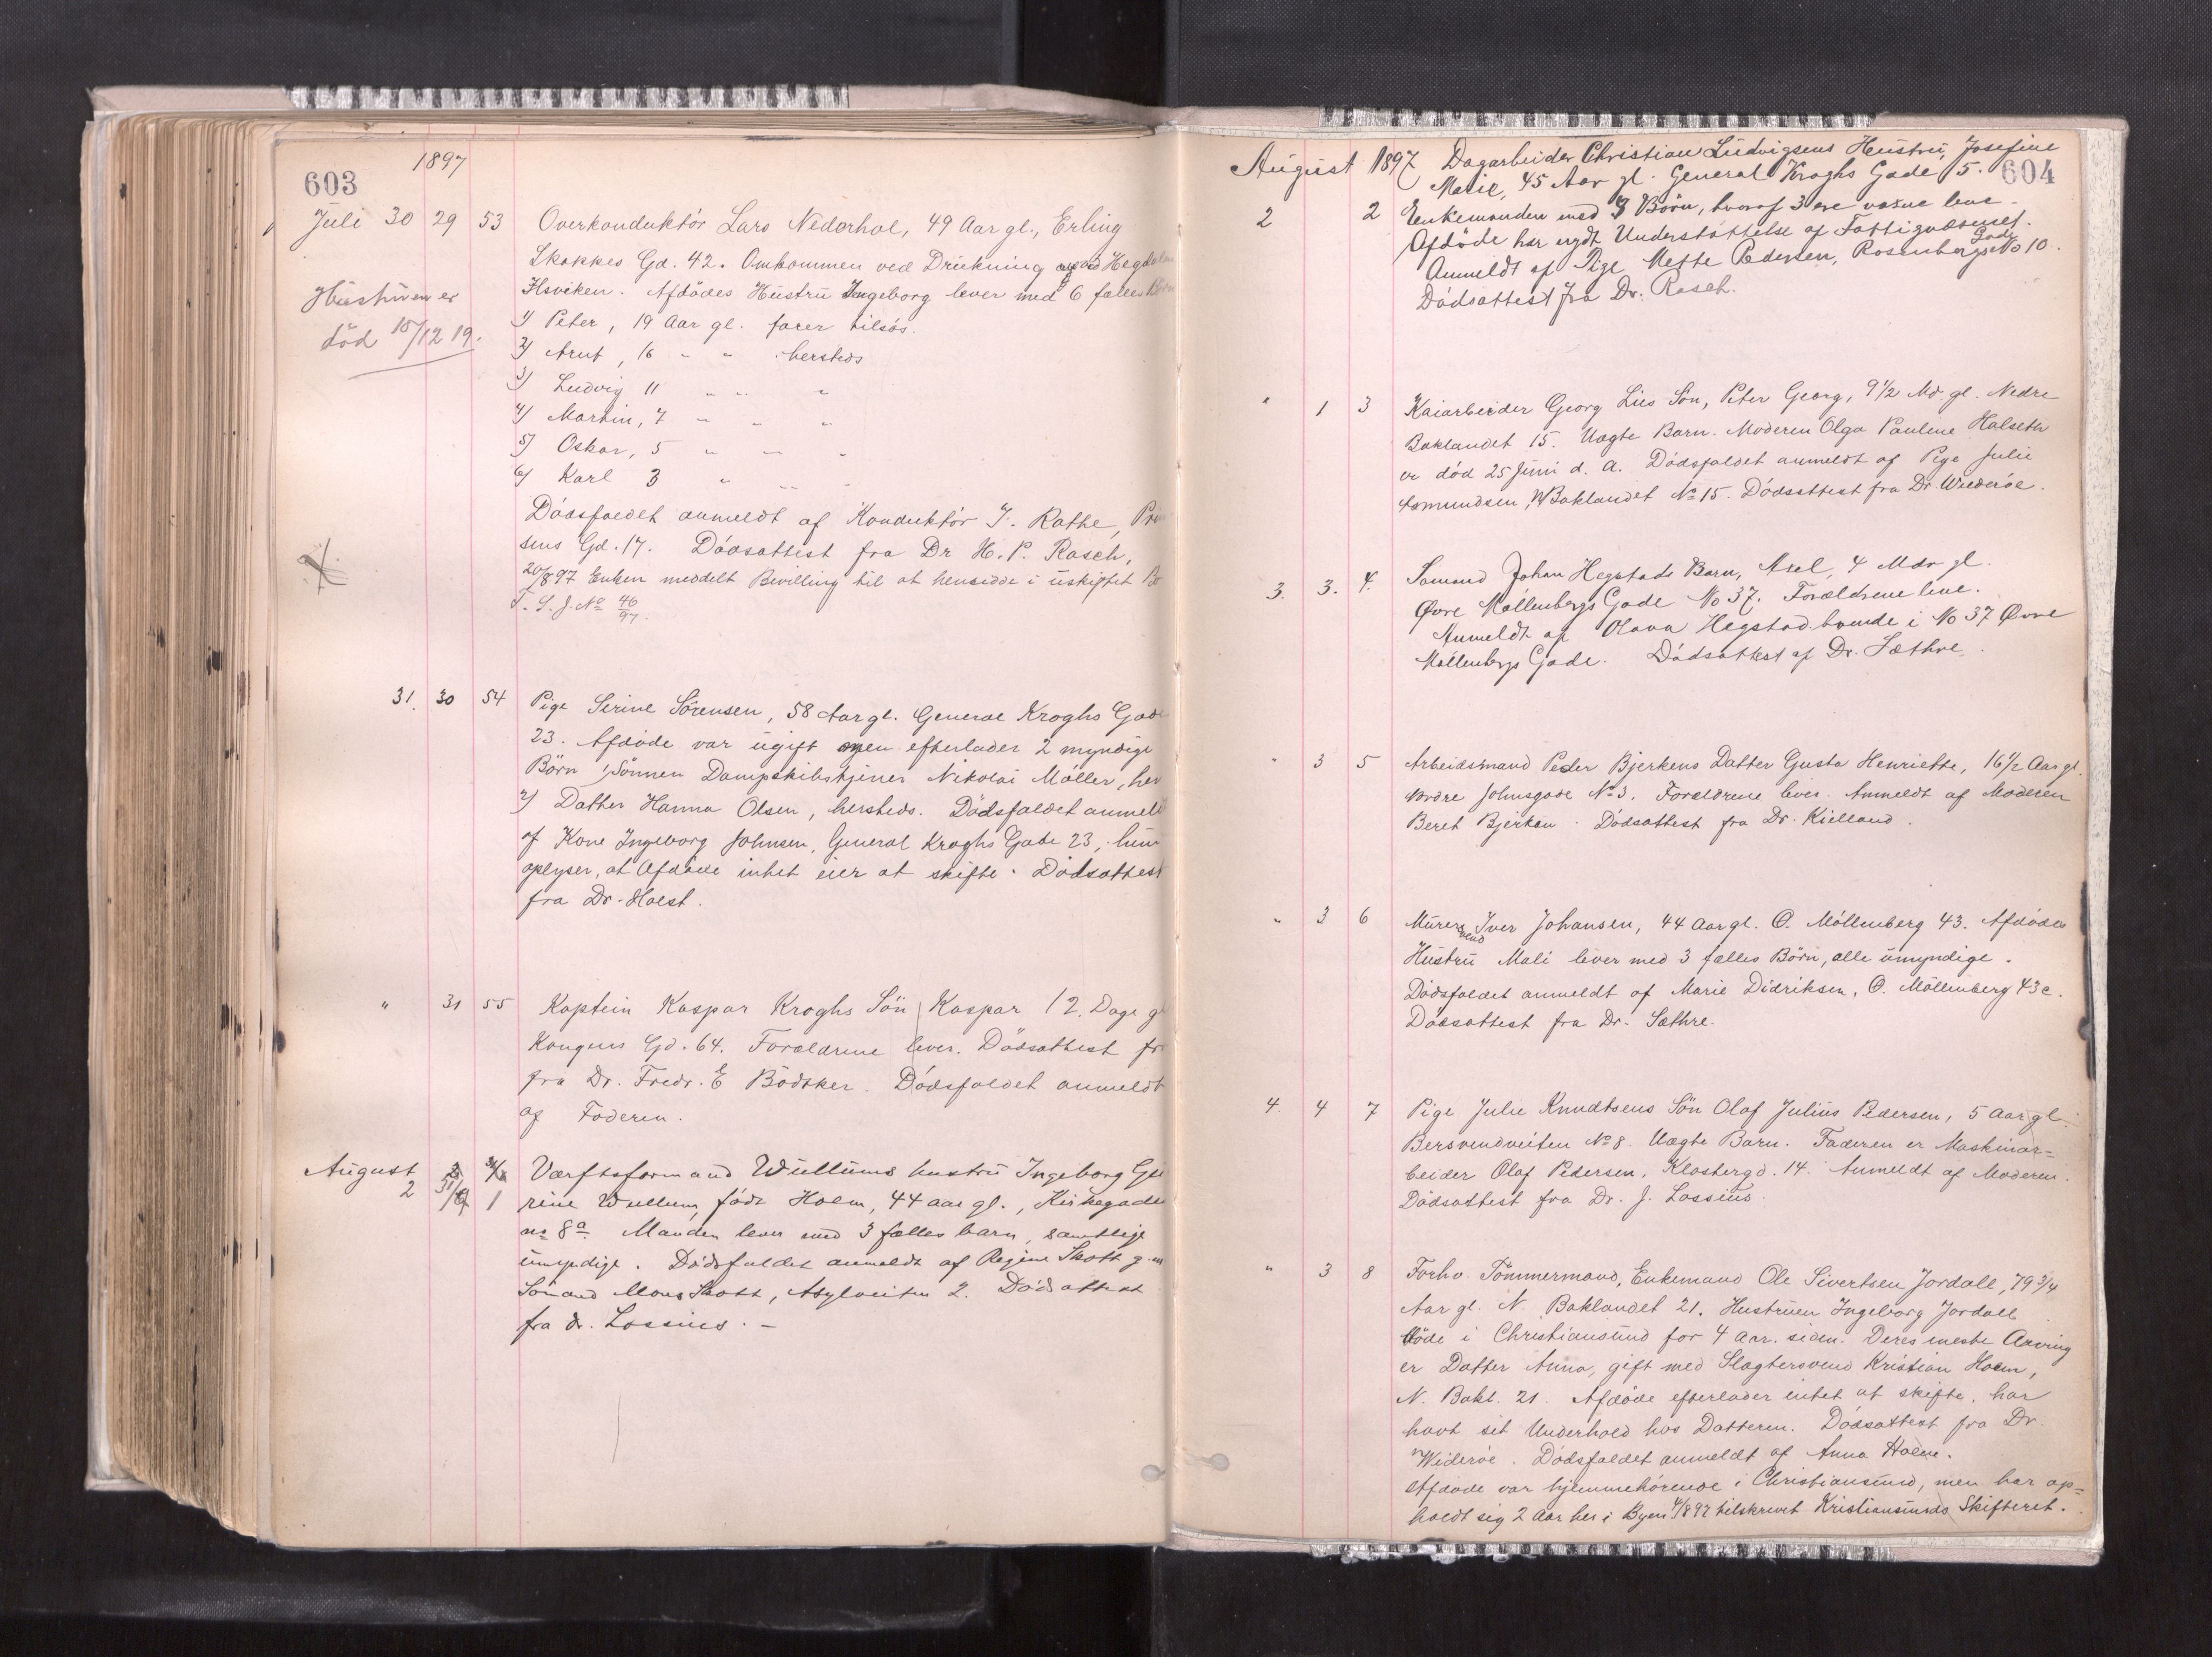 1897
603
Juli 30 29 53 Overkonduktör Lars Nederhol, 49 Aar gl., Erling
Skakkes Gd. 42. Omkommen ved Drukning ved
Ilsviken. Afdödes Hustru Ingeborg lever med 6 fælles
Hustruen er
död 18/12 19.
1) Peter, 19 Aar gl. farer tilsös.
2) Arnt, 16 " " hersteds
3) Ludvig 11 " " "
4) Martin, 7 " " "
5) Oskar, 5 " " "
6) Karl 3 " " "
Dödsfaldet anmeldt af Konduktör J. Rathe,
sens Gd. 17. Dödsattest fra Dr H. P. Rasch,
20/8 97 Enken meddelt Bevilling til at hensidde i uskiftet Bo
T. S. J. No 46/97.
31. 30 54 Pige Serine Sörensen, 58 Aar gl. General Kroghs Gade
23. Afdöde var ugift men efterlader 2 myndige
Börn 1) Sönnen Dampskibstjener Nikolai Möller, her
2) Datter Hanna Olsen, hersteds. Dödsfaldet anmeldt
af Kone Ingeborg Johnsen, General Kroghs Gade 23, hun
oplyser, at Afdöde intet eier at skifte. Dödsattest
fra Dr. Holst.
" 31 55 Kaptein Kaspar Kroghs Sön Kaspar 12 Dage gl
Kongens Gd. 64. Forældrene lever. Dödsattest fr
fra Dr. Fredr. E Bödtker. Dödsfaldet anmeldt
af Faderen.
August Værftsformand Wullums hustru Ingeborg
2 31/7 1 rine Wullum, födt Holm, 44 aar gl., Kirkegade
no 8a. Manden lever med 3 fælles barn, samtlige
umyndige. Dödsfaldet anmeldt af Regine Skott g. m
Sömand Mons Skott, Asylveiten 2. Dödsattest
fra dr. Lossius. -
August 1897 Dagarbeider Christian Ludvigsens Hustru, Josefine
604
Marie, 45 Aar gl. General Kroghs Gade 5.
2 2 Enkemanden med Börn, hvoraf 3 ere voxne leve.
Afdöde har nydt Understöttelse af Fattigvæsenet.
Anmeldt af Pige Mette Pedersen, Rosenbergs Gade No 10.
Dödsattest fra Dr. Rasch.
" 1 3 Kaiarbeider Georg Lies Sön, Peter Georg, 9 1/2 Md. gl. Nedre
Baklandet 15. Uægte Barn. Moderen Olga Pauline Halseth
er död 25 Juni d. A. Dödsfaldet anmeldt af Pige Julie
Asmundsen, N Baklandet No 15. Dödsattest fra Dr. Wideröe.
3. 3. 4. Sömand Johan Hegstads Barn, Axel, 4 Mdr gl.
Øvre Möllenbergs Gade No 37. Forældrene leve.
Anmeldt af Olava Hegstad boende i No 37 Øvre
Möllenbergs Gade. Dödsattest af Dr. Sæthre.
" 3 5 Arbeidsmand Peder Bjerkens Datter Gusta Henriette, 16 1/2 Aar gl.
Nordre Johnsgade No 3. Forældrene lever. Anmeldt af Moderen
Beret Bjerken. Dödsattest fra Dr. Kielland.
" 3 6 Murersvend Iver Johansen, 44 Aar gl. O. Möllenberg 43. Afdödes
Hustru Mali lever med 3 fælles Börn, alle umyndige.
Dödsfaldet anmeldt af Marie Didriksen, O. Möllenberg 43c.
Dödsattest fra Dr. Sæthre.
4. 4 7 Pige Julie Knudtsens Sön Olaf Julius Pedersen, 5 Aar gl.
Bersvendveiten No 8. Uægte Barn. Faderen er Maskinar=
beider Olaf Pedersen, Klostergd. 14. Anmeldt af Moderen.
Dödsattest fra Dr. J. Lossius.
" 3 8 Forhv. Tömmermand, Enkemand Ole Sivertsen Jordall, 79 3/4
Aar gl. N. Baklandet 21. Hustruen Ingeborg Jordall
döde i Christiansund for 4 Aar siden. Deres eneste Arving
er Datter Anna, gift med Slagtersvend Kristian Holm,
N. Bakl. 21. Afdöde efterlader intet at skifte, har
havt sit Underhold hos Datteren. Dödsattest fra Dr.
Wideröe. Dödsfaldet anmeldt af Anna Holm.
Afdöde var hjemmehörende i Christiansund, men har op=
holdt sig 2 Aar her i Byen 4/8 97 tilskrevet Kristiansunds Skifteret.